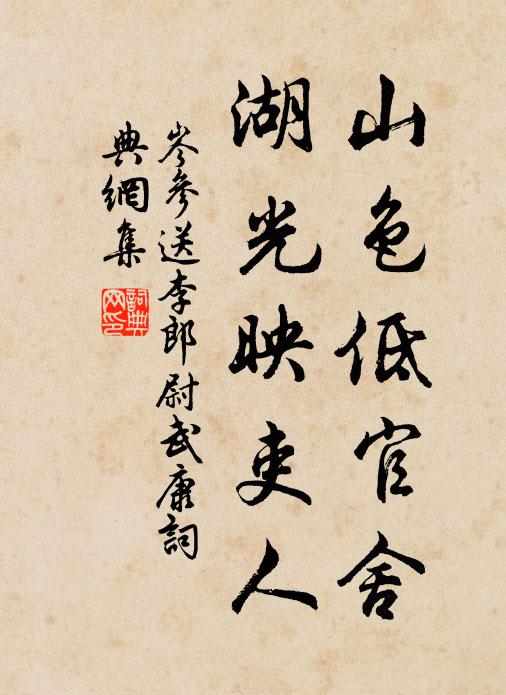 山色低官舍
湖光映吏人
岑參送李郎尉武康詞
典網集
詞典
网印